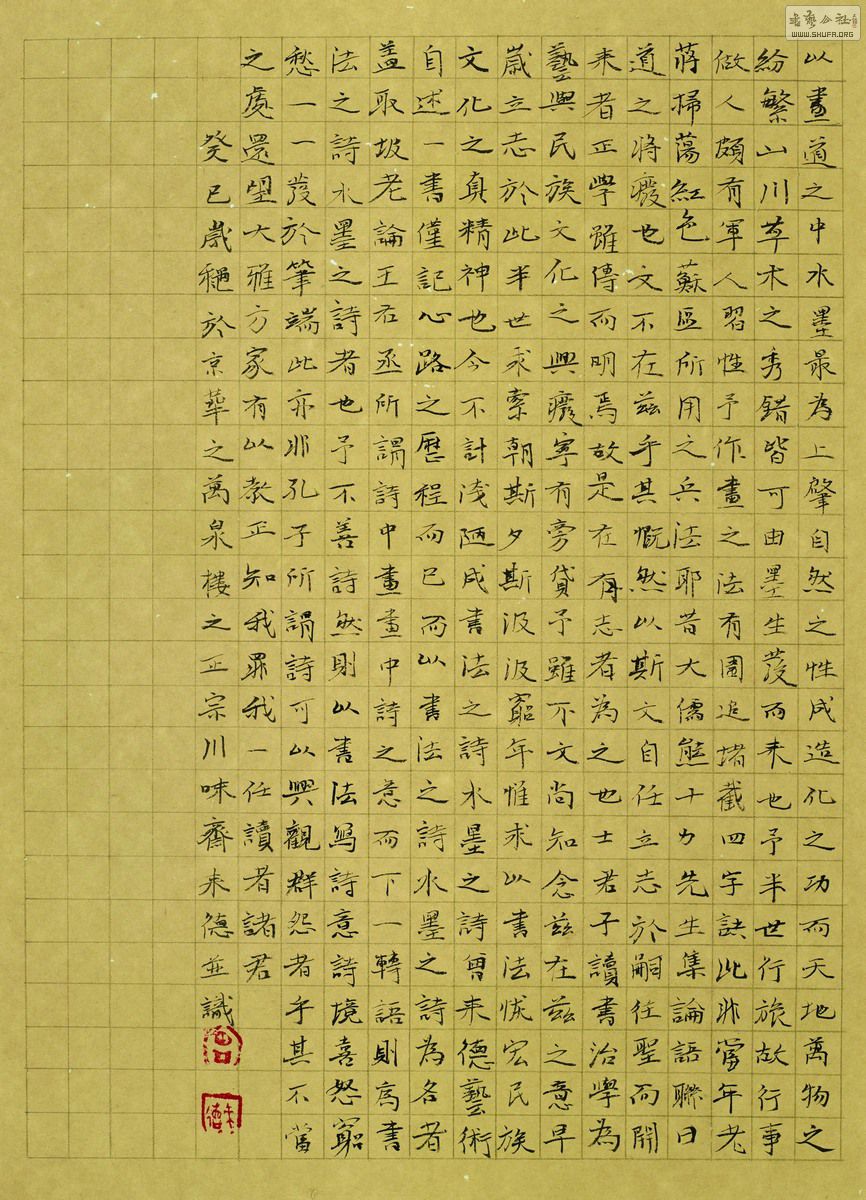 以畫道之中水墨最為上肇自然之性成造化之功而天地萬物之
紛繁山川草木之秀錯皆可由墨生發而来也予半世行旅故行事
做人頗有軍人習性予作畫之法有圍追堵截四字訣此非當年老
蔣掃蕩紅色蘇區所用之兵法耶昔大儒熊十力先生集論語聯曰
道之將廢也文不在茲乎其慨然以斯文自任立志於嗣往聖而開
来者正學雖傳而明焉故是在有志者為之也士君子讀書治學為
藝與民族文化之興廢寧有旁貸予雖不文尚知念茲在茲之意早
歲立志於此半世求索朝斯夕斯汲汲窮年惟求以書法恢宏民族
文化之真精神也今不計淺陋成書法之詩水墨之詩曾来德藝術
自述一書僅記心路之歷程而已而以書法之詩水墨之詩為名者
蓋取坡老論王右丞所謂詩中畫畫中詩之意而下一轉語則為書
法之詩水墨之詩者也予不善詩然則以書法寫詩意詩境喜怒窮
愁一一發於筆端此亦非孔子所謂詩可以興觀群怨者乎其不當
之處還望大雅方家有以教正知我罪我一任讀者諸君
癸巳歲穐於京華之萬泉樓之正宗川味齋来德並識
WWW.SHUFA.ORG